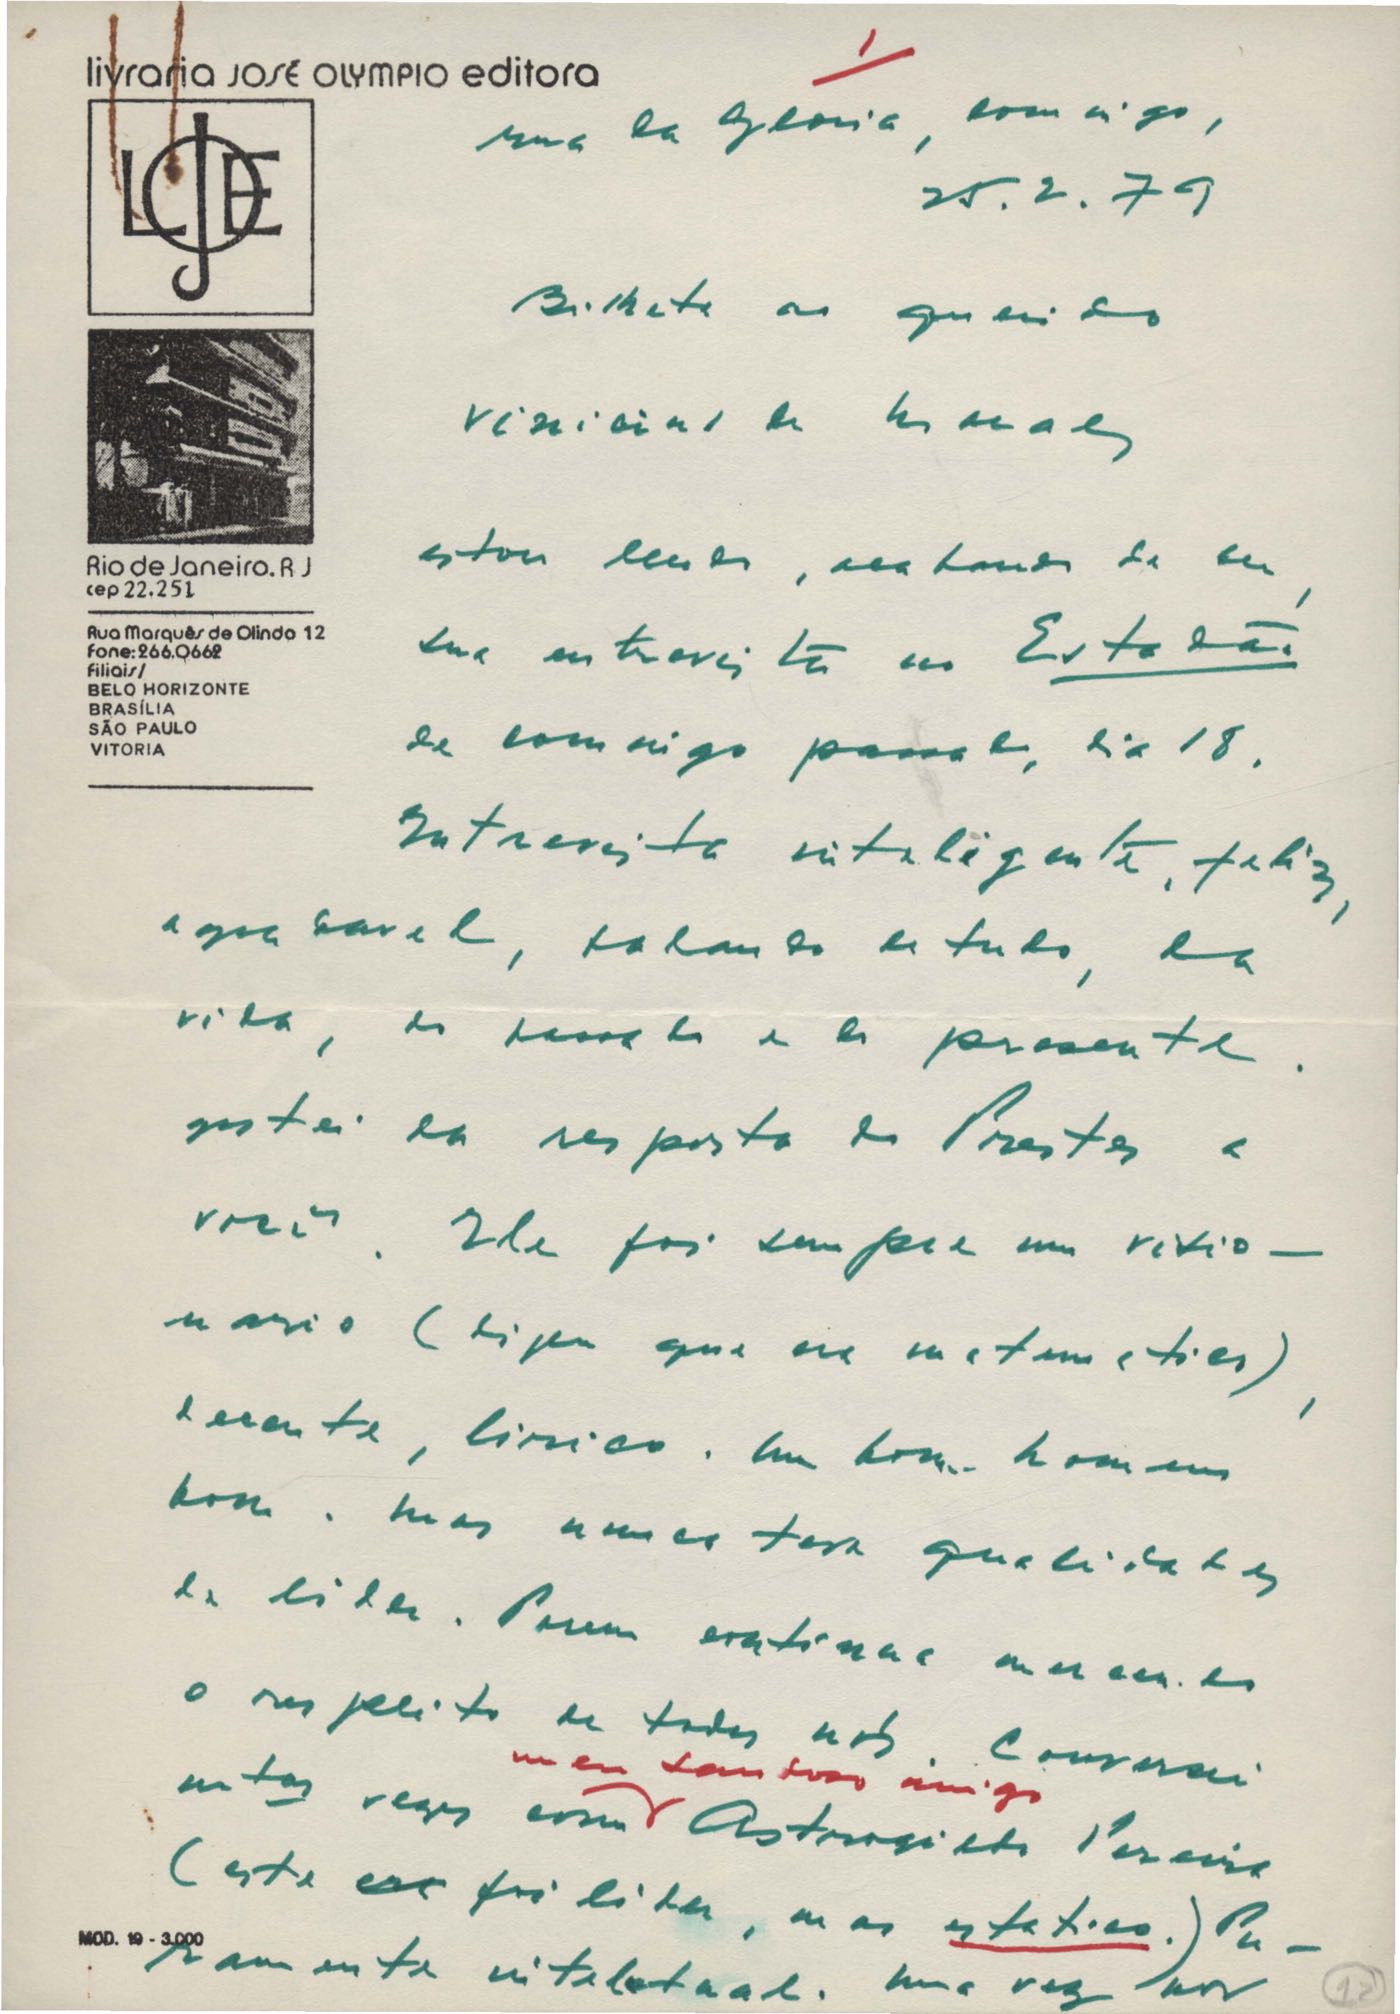 livraria JOSÉ OLYMPIO editora
1
rua da Gloria, domingo,
25.2.79
Bilhete ao querido
Vinicius de Moraes
LJOE
Rio de Janeiro. RJ
cep 22.251
Rua Marquês de Olinda 12
fone: 266.0662
filiais/
BELO HORIZONTE
BRASÍLIA
SÃO PAULO
VITORIA
estou lendo, acabando de ler,
sua entrevista no Estadão
de domingo passado, dia 18.
Entrevista inteligente, feliz,
agradavel, falando de tudo, da
vida, do passado e do presente.
gostei da resposta do Prestes a
você. Ele foi sempre um visio-
nario (dizem que era matematico),
decente, lirico. Um bom homem
bom. Mas nunca teve qualidades
de lider. Porem continua merecendo
o respeito de todos nós. Conversei
mtas vezes com meu saudoso amigo Astrogildo Pereira
(este foi lider, mas estatico.) Pu-
ramente intelectual. Uma vez
MOD. 19 - 3.000
12